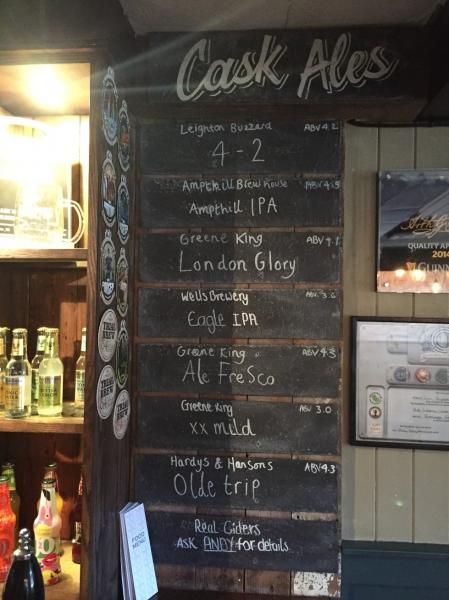 Cask Ales
Leighton Buzzard ABV 4.2
4-2
Ampthill Brew House ABV 4.5
Ampthill IPA
Greene King ABV 4.1
London Glory
Wells Brewery ABV 3.6
Eagle IPA
Greene King ABV 4.3
Ale Fresco
Greene King ABV 3.0
XX mild
Hardys & Hansons ABV 4.3
Olde trip
Real Ciders
Ask ANDY for details
FOOD MENU
QUALITY
2014
GUINN